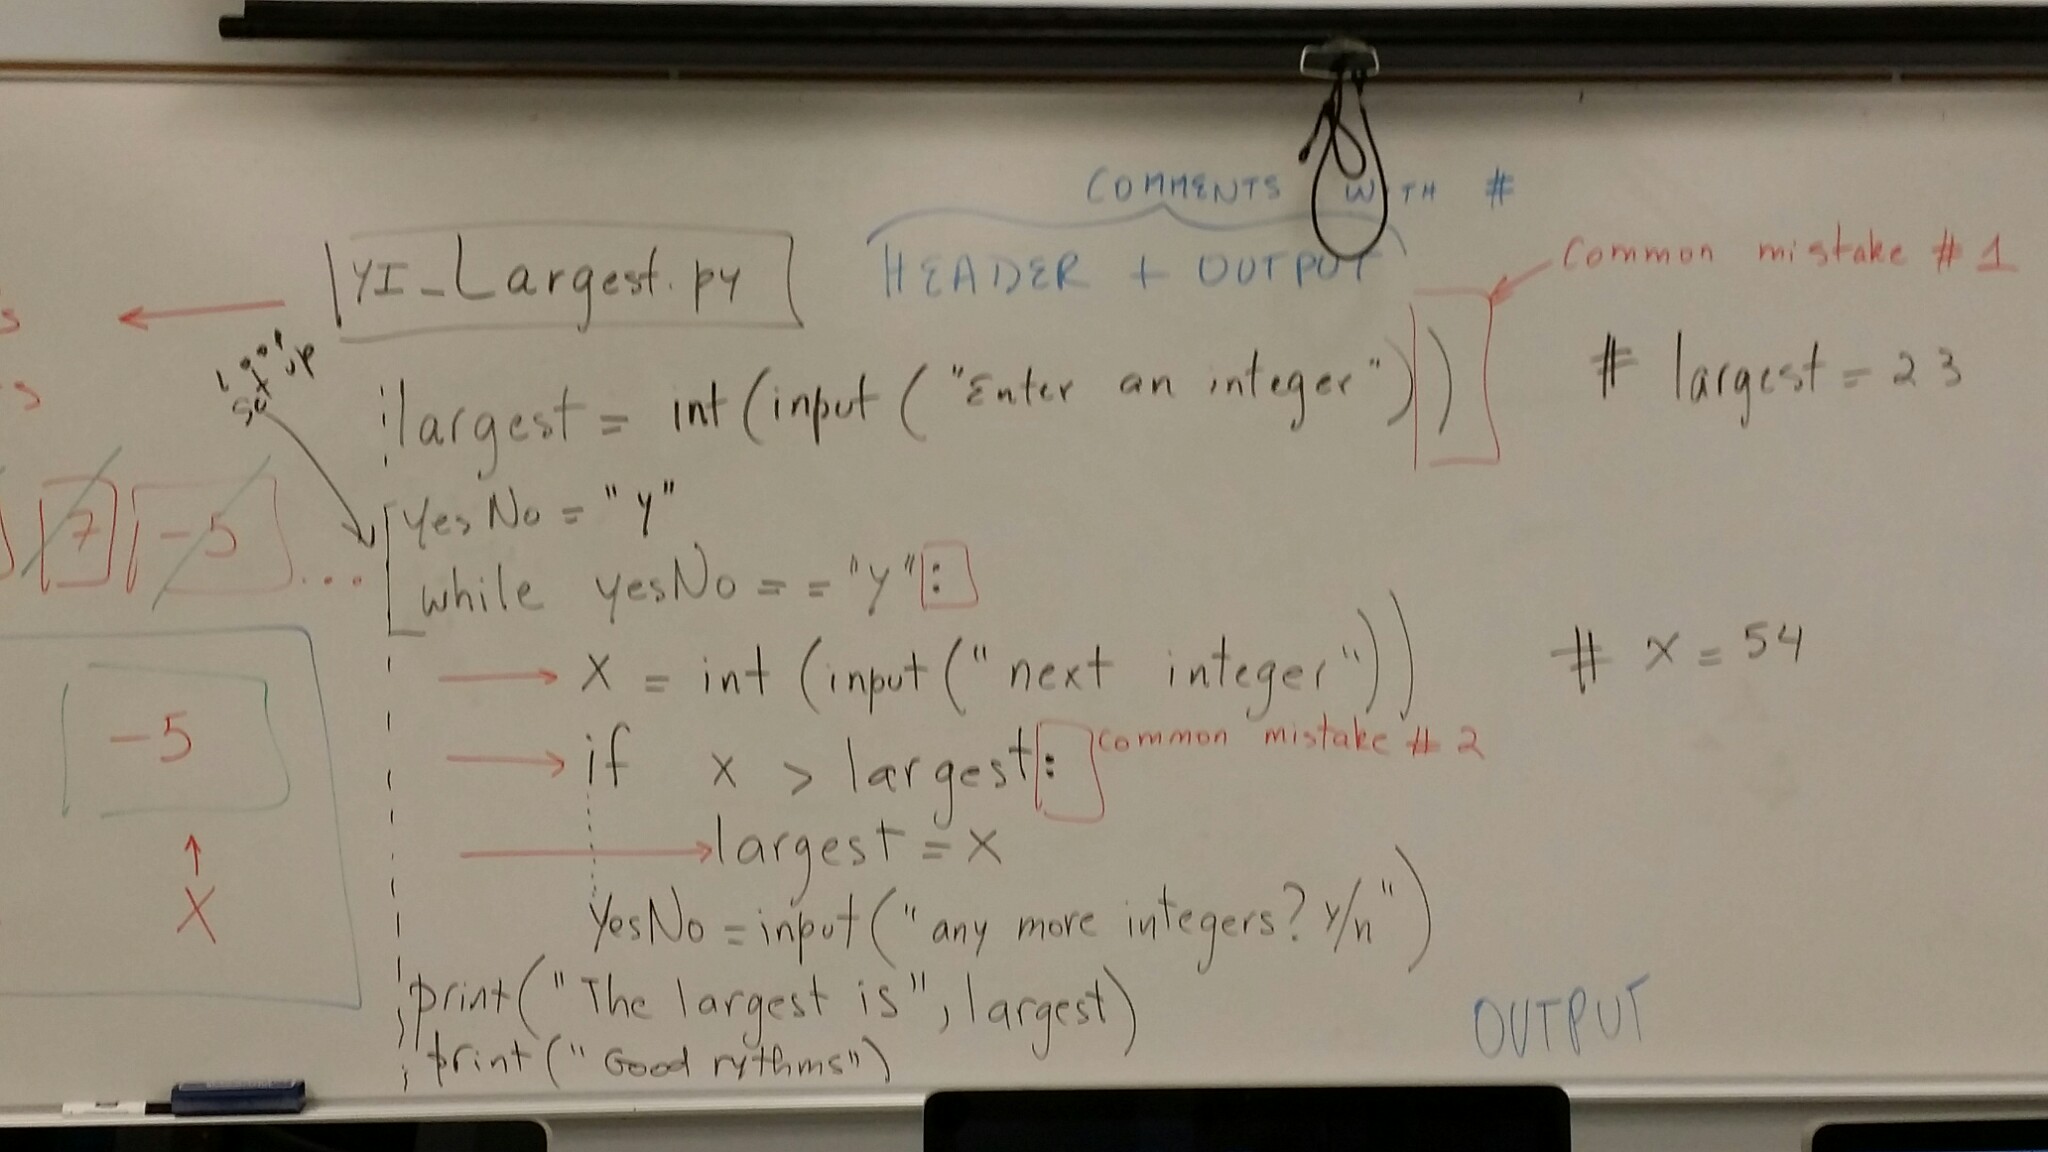 COMMENTS WITH #
YI_Largest.py
HEADER + OUTPUT
common mistake # 1
s
loop
set up
s
largest = int(input("Enter an integer"))
# largest = 23
7 -5 ...
yesNo = "y"
while yesNo == "y":
x = int(input("next integer"))
# x = 54
-5
if x > largest:
common mistake # 2
largest = x
X
yesNo = input("any more integers? y/n")
print("The largest is", largest)
OUTPUT
print("Good rythms")